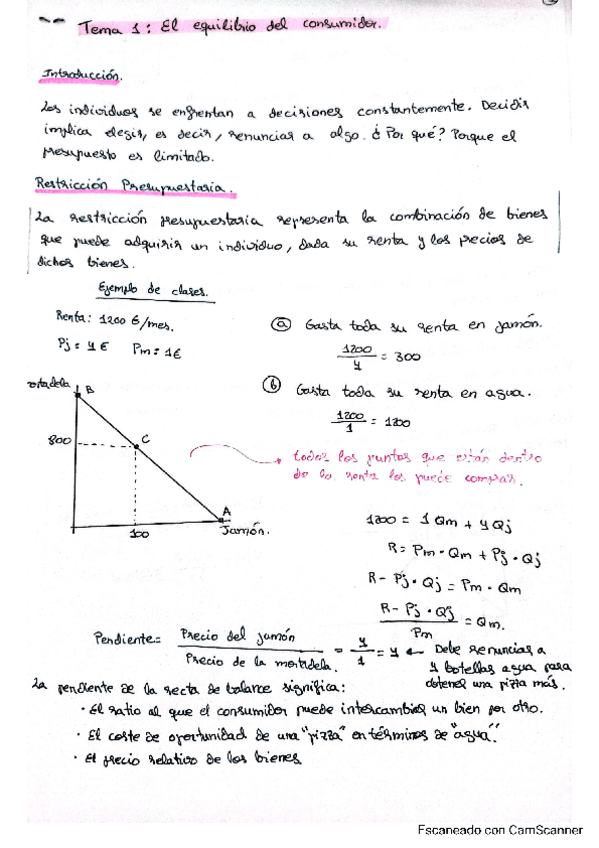 Tema 1: El equilibrio del consumidor.
Introducción.
Los individuos se enfrentan a decisiones constantemente. Decidir
implica elegir, es decir, renunciar a algo. ¿Por qué? Porque el
presupuesto es limitado.
Restricción Presupuestaria.
La restricción presupuestaria representa la combinación de bienes
que puede adquirir un individuo, dada su renta y los precios de
dichos bienes.
Ejemplo de clases.
Renta: 1200 €/mes.
Pj = 4€ Pm = 1€
a) Gasta toda su renta en jamón.
1200/4 = 300
b) Gasta toda su renta en agua.
1200/1 = 1200
mortadela
B
800
C
A
100
Jamón.
todos los puntos que están dentro
de la renta los puede comprar.
1200 = 1Qm + 4Qj
R = Pm · Qm + Pj · Qj
R - Pj · Qj = Pm · Qm
R - Pj · Qj / Pm = Qm.
Pendiente = Precio del jamón / Precio de la mortadela. = 4/1 = 4 ← Debe renunciar a
4 botellas agua para
obtener una pizza más.
La pendiente de la recta de balance significa:
· El ratio al que el consumidor puede intercambiar un bien por otro.
· El coste de oportunidad de una "pizza" en términos de "agua".
· El precio relativo de los bienes
Escaneado con CamScanner